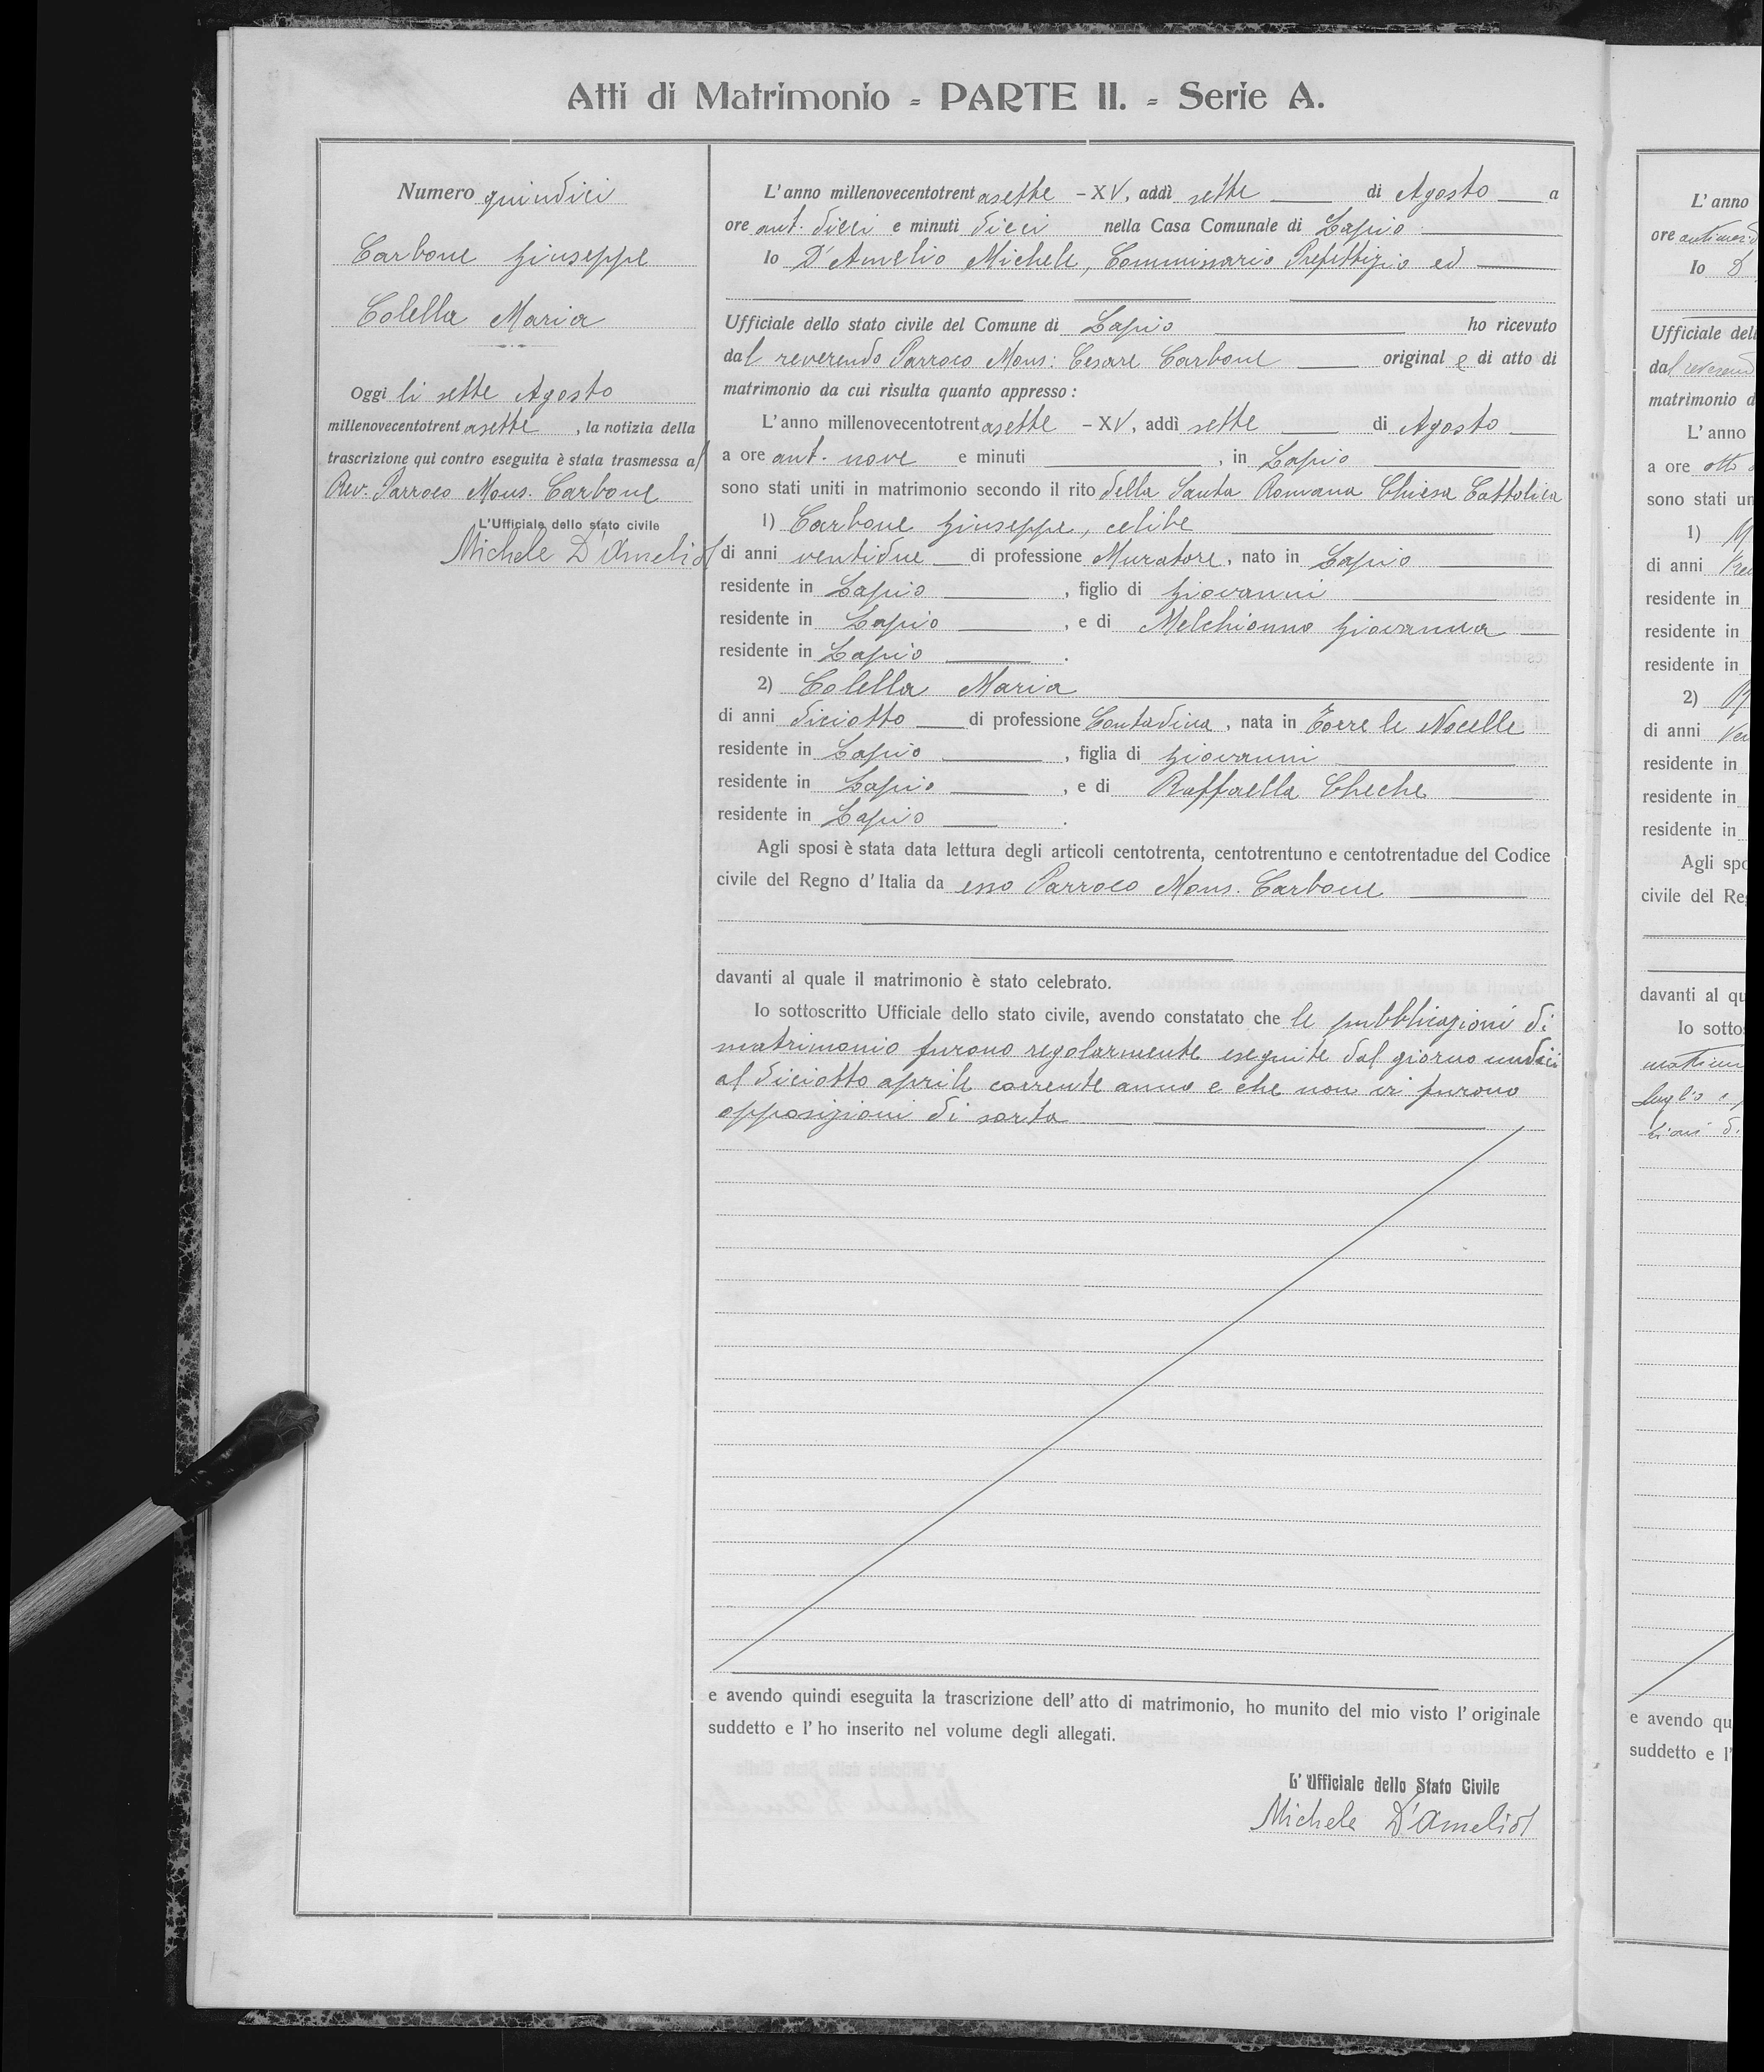 Atti di Matrimonio = PARTE II. = Serie A.
Numero quindici
Carbone Giuseppe
Colella Maria
Oggi li sette Agosto
millenovecentotrentasette, la notizia della
trascrizione qui contro eseguita è stata trasmessa al
Rev. Parroco Mons. Carbone
L'Ufficiale dello stato civile
Michele D'Amelio
L'anno millenovecentotrentasette - XV, addì sette di Agosto a
ore ant. dieci e minuti dieci nella Casa Comunale di Lapio
Io D'Amelio Michele, Commissario Prefettizio ed
Ufficiale dello stato civile del Comune di Lapio ho ricevuto
dal reverendo Parroco Mons: Cesare Carbone originale di atto di
matrimonio da cui risulta quanto appresso:
L'anno millenovecentotrentasette - XV, addì sette di Agosto
a ore ant. nove e minuti , in Lapio
sono stati uniti in matrimonio secondo il rito della Santa Romana Chiesa Cattolica
1) Carbone Giuseppe, celibe
di anni ventidue di professione Muratore, nato in Lapio
residente in Lapio , figlio di Giovanni
residente in Lapio , e di Melchionno Giovanna
residente in Lapio .
2) Colella Maria
di anni diciotto di professione Contadina, nata in Torre le Nocelle
residente in Lapio , figlia di Giovanni
residente in Lapio , e di Raffaella Cheche
residente in Lapio .
Agli sposi è stata data lettura degli articoli centotrenta, centotrentuno e centotrentadue del Codice
civile del Regno d'Italia da esso Parroco Mons. Carbone
davanti al quale il matrimonio è stato celebrato.
Io sottoscritto Ufficiale dello stato civile, avendo constatato che le pubblicazioni di
matrimonio furono regolarmente eseguite dal giorno undici
al diciotto aprile corrente anno e che non vi furono
opposizioni di sorta
e avendo quindi eseguita la trascrizione dell'atto di matrimonio, ho munito del mio visto l'originale
suddetto e l'ho inserito nel volume degli allegati.
L'Ufficiale dello Stato Civile
Michele D'Amelio
L'anno
ore
Io D
Ufficiale dell
dal
matrimonio d
L'anno
a ore otto
sono stati un
1)
di anni
residente in
residente in
residente in
2)
di anni
residente in
residente in
residente in
Agli spo
civile del Re
davanti al qu
Io sotto
e avendo qu
suddetto e l'